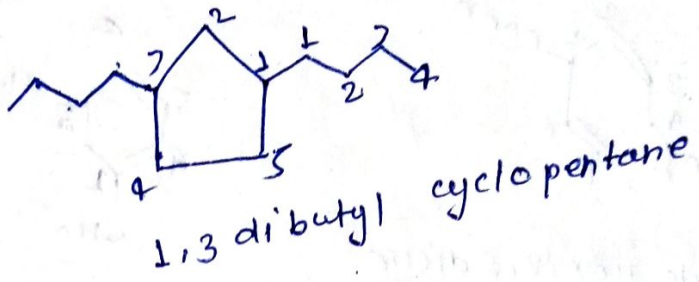 2
3 1 1 3
2 4
4 5
1,3 dibutyl cyclopentane